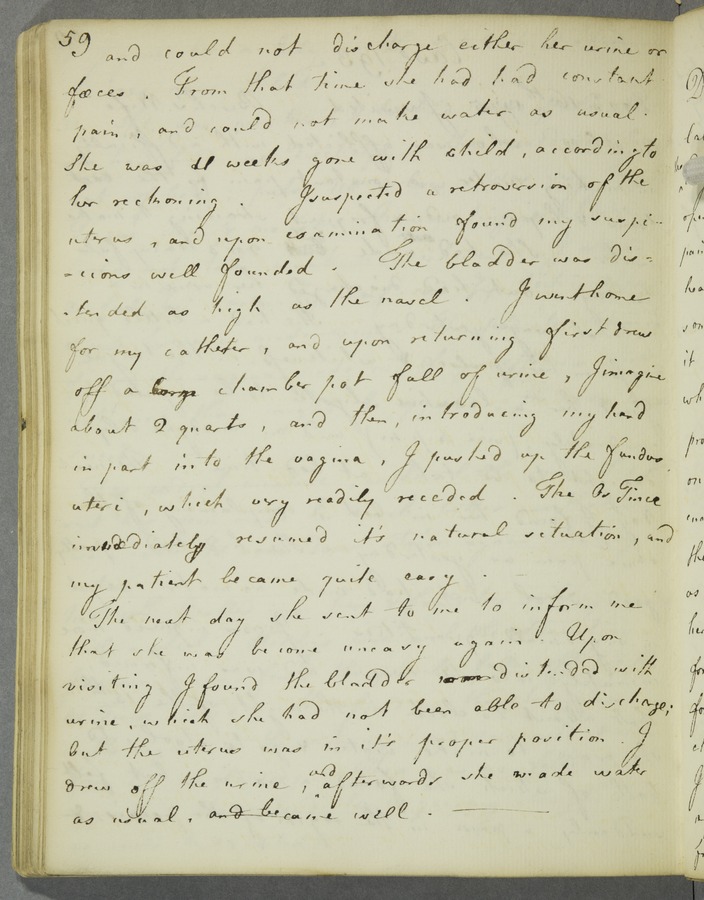 59 and could not discharge either her urine or
fœces. From that time she had had constant
pain, and could not make water as usual.
She was 11 weeks gone with child, according to
her reckoning. I suspected a retroversion of the
uterus, and upon examination found my suspi-
-cions well founded. The bladder was dis-
-tended as high as the navel. I went home
for my catheter, and upon returning first drew
off a large chamber pot full of urine, I imagine
about 2 quarts, and then, introducing my hand
in part into the vagina, I pushed up the fundus
uteri, which very readily receded. The Os Tincæ
immediately resumed it's natural situation, and
my patient became quite easy.
The next day she sent to me to inform me
that she was become uneasy again. Upon
visiting I found the bladder distended with
urine, which she had not been able to discharge;
but the uterus was in it's proper position. I
drew off the urine, and afterwards she made water
as usual, and became well.